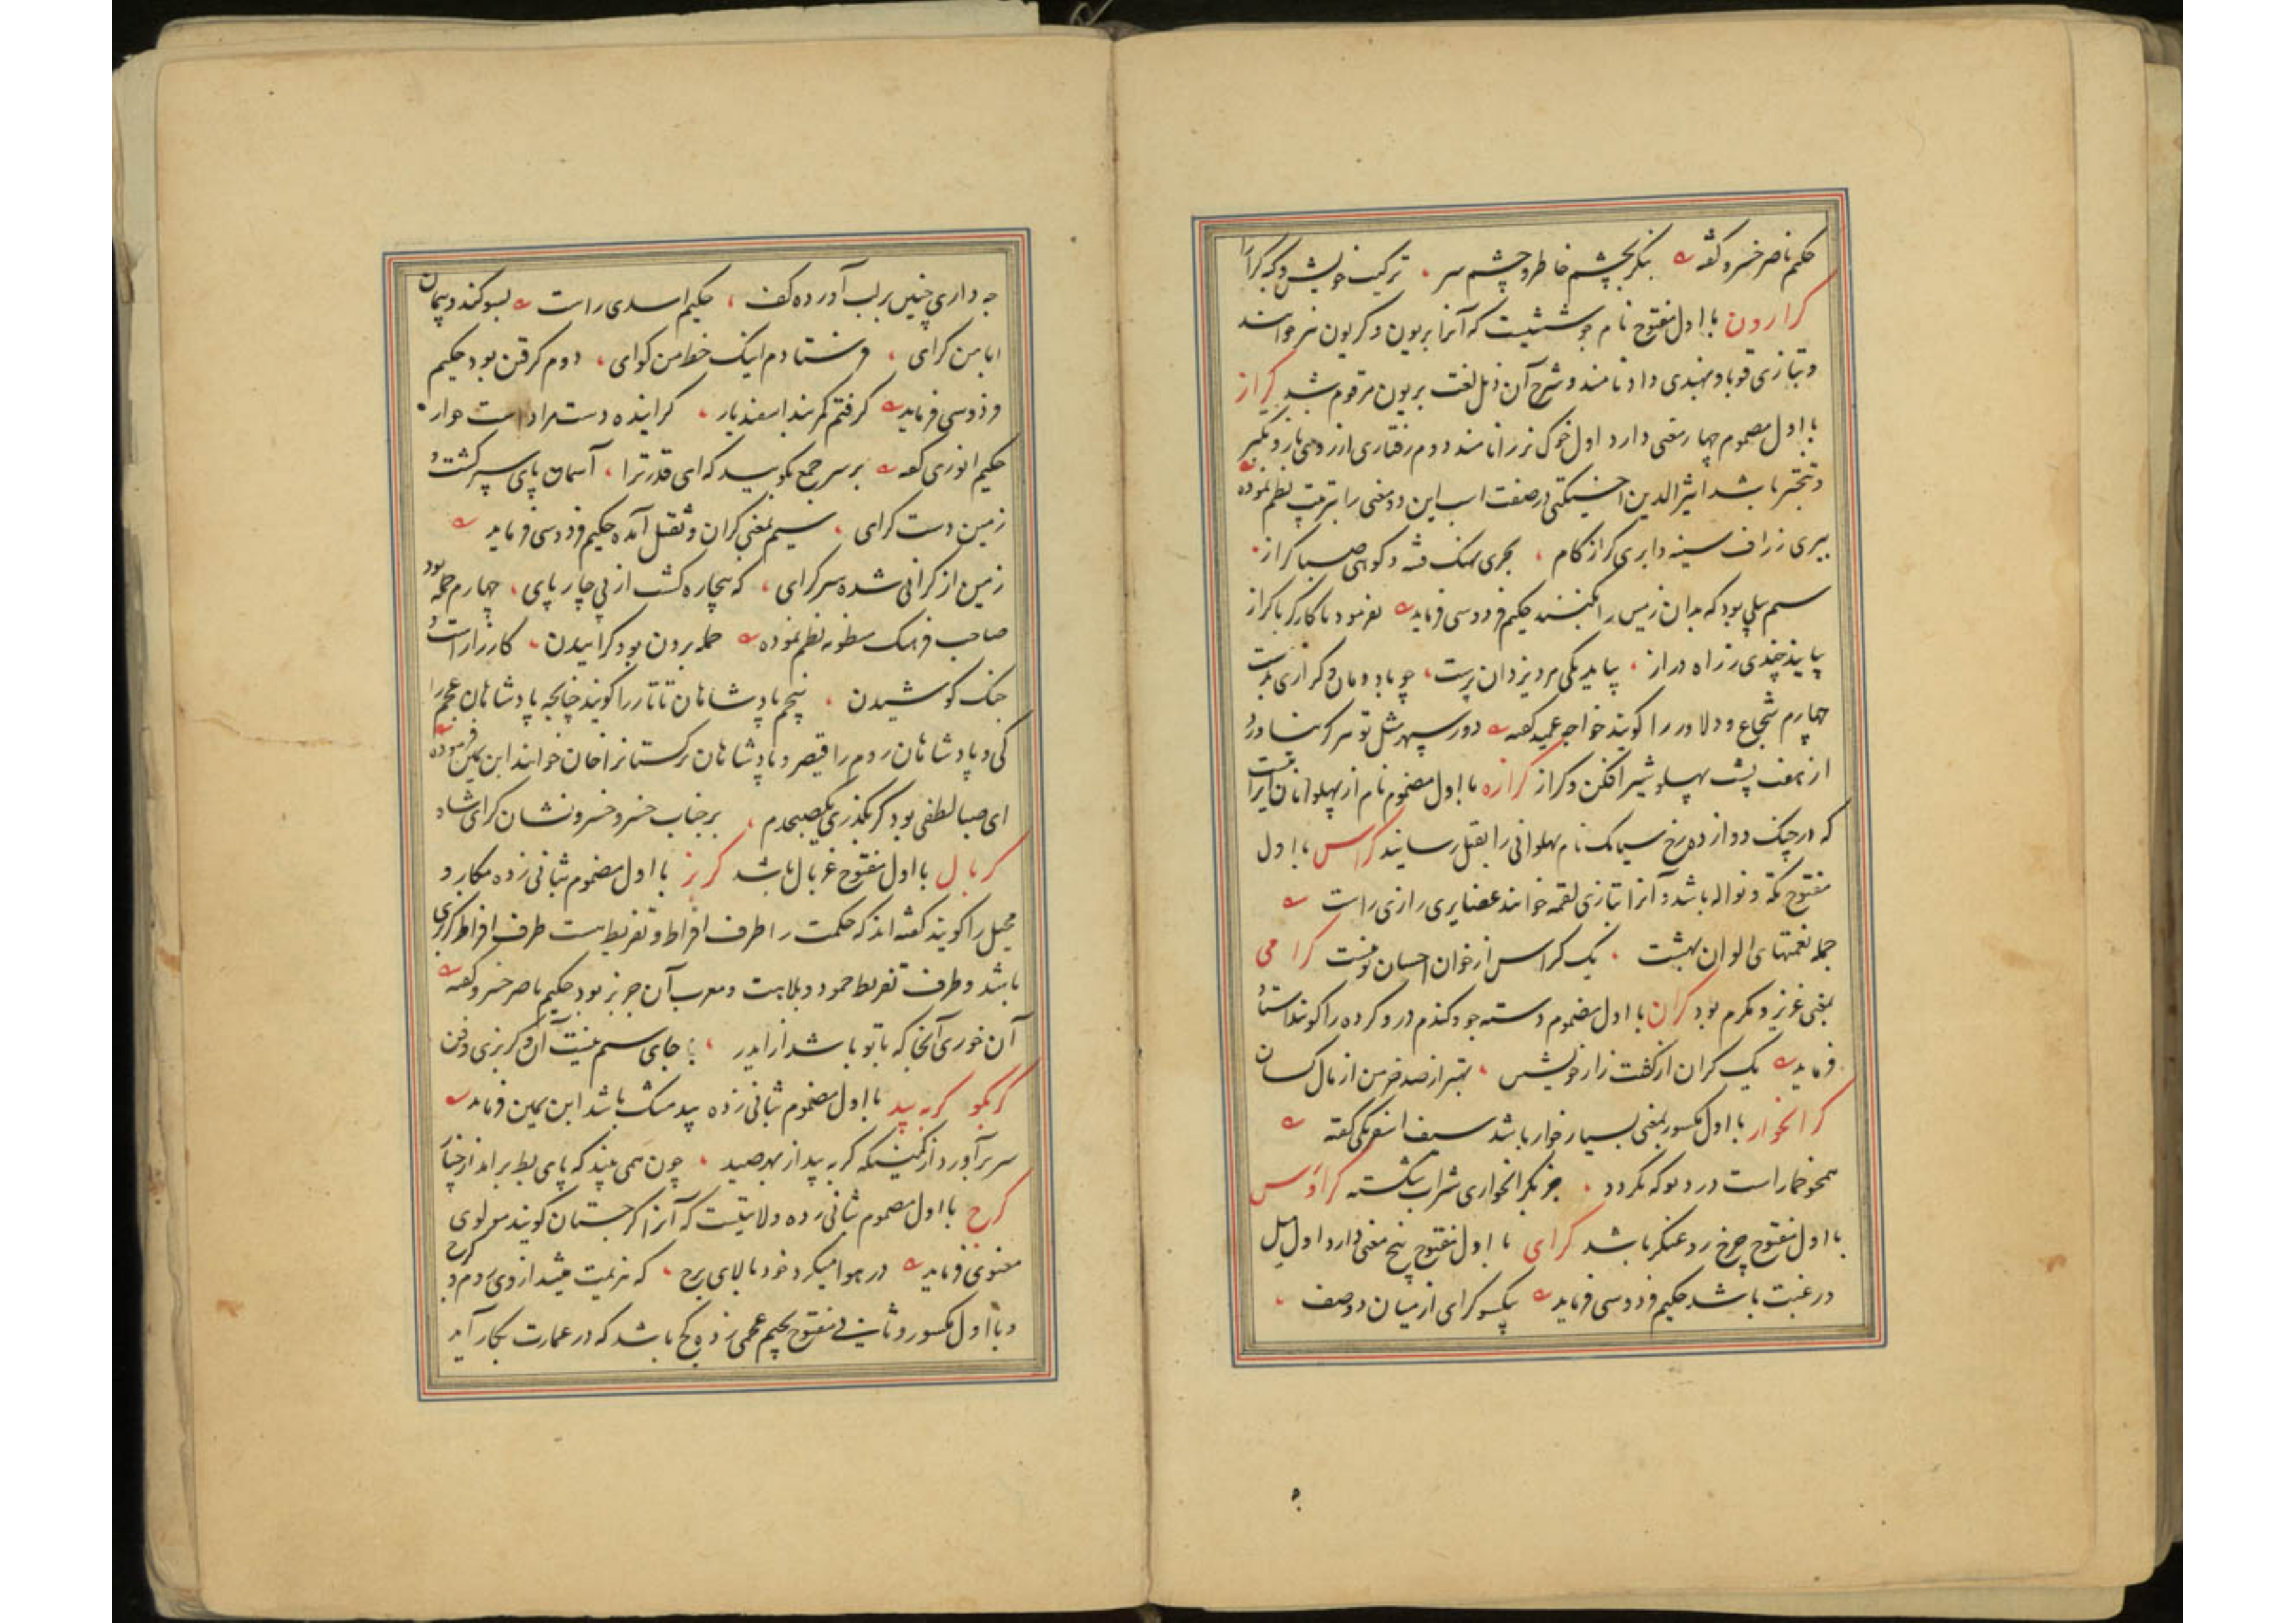 حکیم ناصر خسرو گفته بنگر بچشم خاطر و چشم سر ترکیب خویش و گنبد گرا
کرارون با اول مفتوح نام جوششیست که آنرا بریون و کریون نیز خوانند
و بتازی قوبا و بهندی داد نامند و شرح آن ذیل لغت بریون مرقوم شد کراز
با اول مضموم چهار معنی دارد اول خوک نر را نامند دوم رفتاری از روی ناز و تکبر
و تبختر باشد اثیر الدین اخسیکتی در صفت اسب این دو معنی را بترتیب نظم نموده
ببری زراف سینه و ابری کراز کام بحری نهنک و کوهی صبا کراز
سیم بیلی بود که بدان زمین را بکنند حکیم فردوسی فرماید بفرمود تا کارگر با کراز
بیاید چندی ز راه دراز بیامد یکی مرد یزدان پرست چو باد دمان و کرازی بدست
چهارم شجاع و دلاور را گویند خواجه عمید گفته دور سپهر مثل تو سرکش نیاورد
از هفت پشت پهلو شیر افکن و کراز کرازه با اول مضموم نام از پهلوانان ایرانست
که در جنک دوازده رخ سیامک نام پهلوانی را بقتل رسانید کراس با اول
مفتوح تکه و نواله باشد و آنرا بتازی لقمه خوانند عضایری رازی راست
جمله نعمتهای الوان بهشت یک کراس از خوان احسان تو نیست کرامی
بمعنی عزیز و مکرم بود کران با اول مضموم دسته جو و کندم درو کرده را گویند استاد
فرماید یک کران از کشت زار خویش بهتر از صد خرمن از مال کسان
کرانخوار با اول مکسور بمعنی بسیار خوار باشد سیف اسفرنکی گفته
همچو خمار است درد بو که نکردد جز بکرانخواری شراب شکسته کراوس
با اول مفتوح چرخ روغنکر باشد کرای با اول مفتوح پنج معنی دارد اول میل
و رغبت باشد حکیم فردوسی فرماید یکسو کرای از میان دو صف
چه داری چنین بر لب آورده کف حکیم اسدی راست بسوکند و پیمان
ابا من کرای فرستادم اینک خط من کوای دوم کرفتن بود حکیم
فردوسی فرماید کرفتم کمر بند اسفندیار کراینده دست مرا داشت خوار
حکیم انوری گفته بر سر جمع بگویید که ای قدر ترا آسمان پای سپر کشت و
زمین دست کرای سیم بمعنی کران و ثقل آمده حکیم فردوسی فرماید
زمین از کرانی شده سرکرای که بیچاره کشت از پی چار پای چهارم حمله بود
صاحب فرهنک منظومه نظم نموده حمله بردن بود کراییدن کارزار است و
جنک کوشیدن پنجم پادشاهان تاتار را کویند چنانچه پادشاهان عجم را
کی و پادشاهان روم را قیصر و پادشاهان ترکستانرا خان خوانند ابن یمین فرموده
ای صبا لطفی بود کر بگذری یکصبحدم بر جناب خسرو خسرو نشان کرای شاه
کربال با اول مفتوح غربال باشد کربز با اول مضموم بثانی زده مکار و
محیل را کویند گفته اند که حکمت را طرف افراط و تفریط است طرف افراط کربزی
باشد و طرف تفریط خمود و بلاهت و معرب آن جربز بود حکیم ناصر خسرو گفته
آن خوری آنجا که با تو باشد از ایدر جای سیم نیست آن و کربزی و فن
کربکو کربه بید با اول مضموم بثانی زده بید مشک باشد ابن یمین فرماید
سر برآورد از کمینکه کربه بید از بهر صید چون همی بیند که پای بط براند از چنار
کرج با اول مضموم بثانی زده ولایتیست که آنرا کرجستان کویند مولوی
معنوی فرماید در هوا میکرد خود بالای برج که هزیمت میشد از وی روم و کرج
و با اول مکسور و ثانی مفتوح بجیم عجمی زده کچ باشد که در عمارت بکار آید